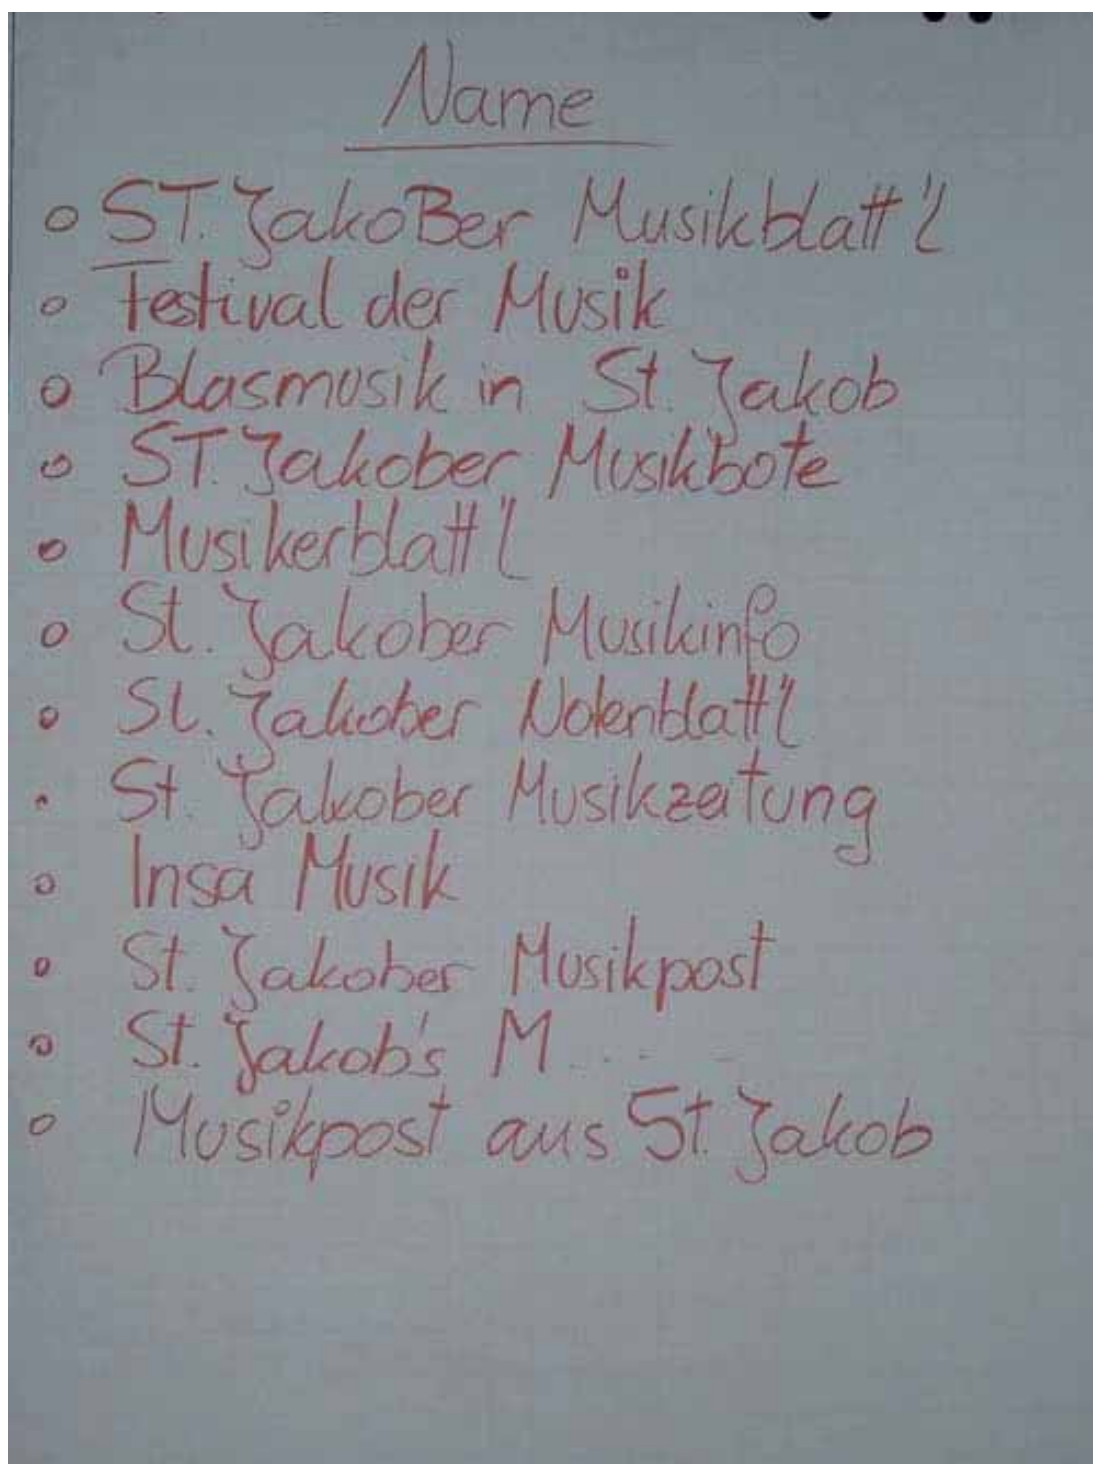 Name
ST. JakoBer Musikblatt'l
Festival der Musik
Blasmusik in St. Jakob
ST. Jakober Musikbote
Musikerblatt'l
St. Jakober Musikinfo
St. Jakober Notenblatt'l
St. Jakober Musikzeitung
Insa Musik
St. Jakober Musikpost
St. Jakob's M.....
Musikpost aus St. Jakob